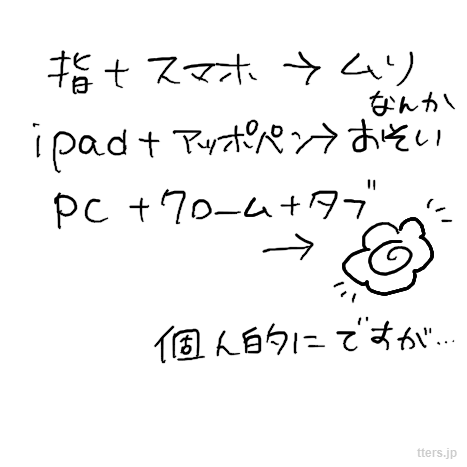 指+スマホ→ムリ
なんか
ipad+アッポペン→おそい
PC+クローム+タブ
→
個人的にですが…
tters.jp